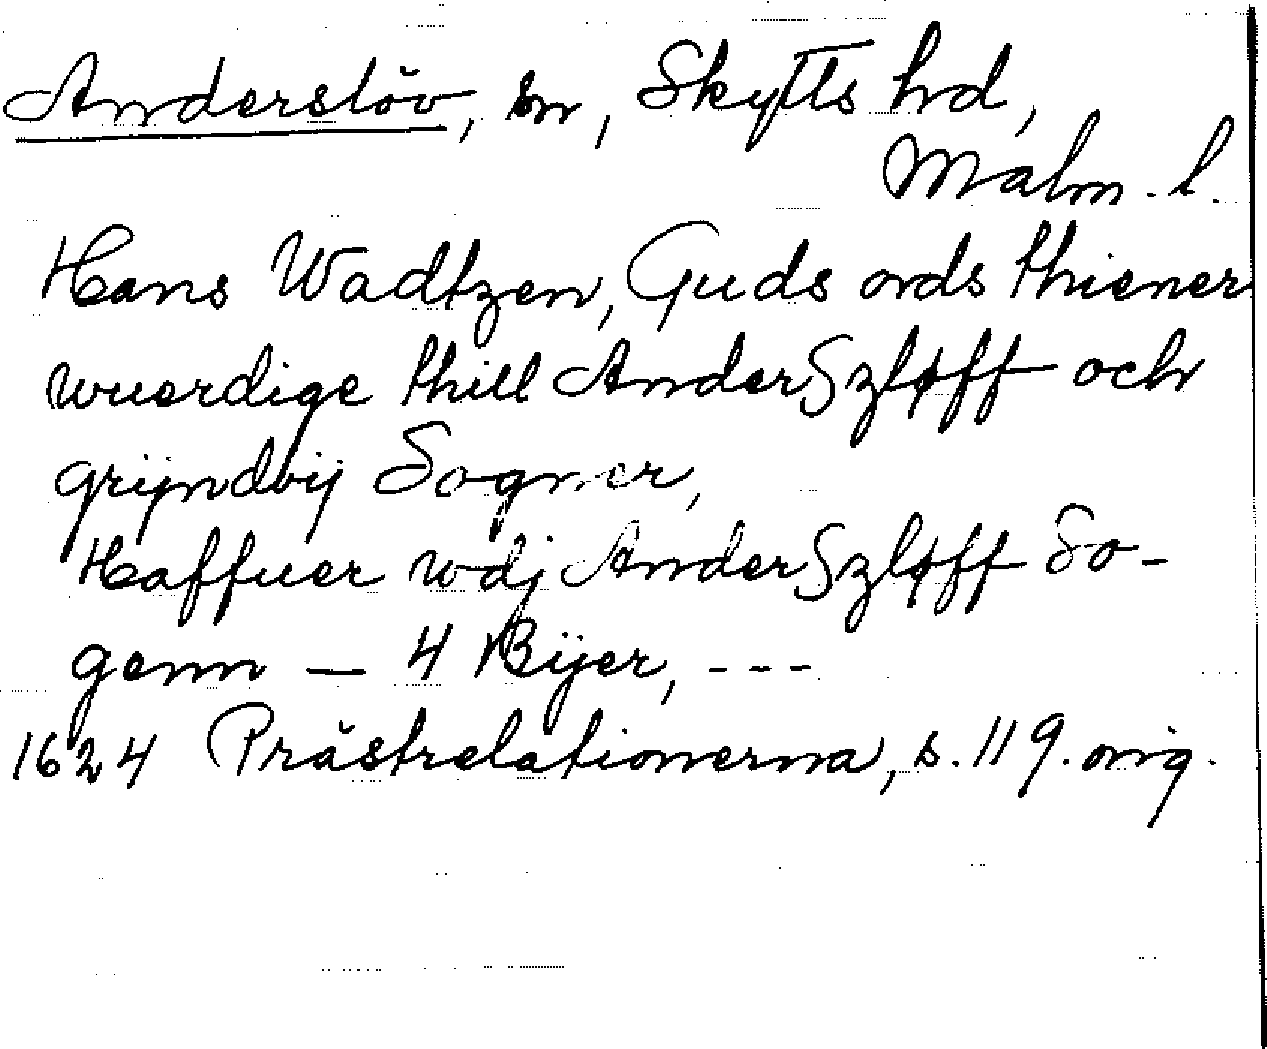 Anderslöv, sn, Skytts hd,
Malm. l.
Hans Wadtzen, Guds ords thiener
wuerdige thill AnderSzløff och
grijndbij Sogner,
Haffuer wdj AnderSzløff So-
genn — 4 Bÿer, ---
1624 Prästrelationerna, s. 119. orig.